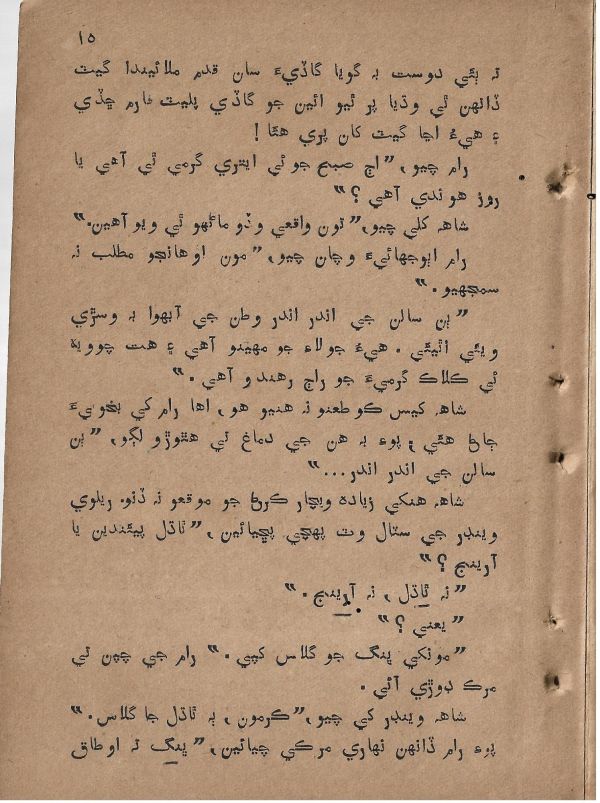 ۱۵
ته ٻئي دوست به گويا گاڏيءَ سان قدم ملائيندا گيٽ
ڏانهن ئي وڌيا پر ٿيو ائين جو گاڏي پليٽ فارم ڇڏي
۽ هيءُ اڃا گيٽ کان پري هئا!
رام چيو، ”اڄ صبح جو ئي ايتري گرمي ٿي آهي يا
روز هوندي آهي؟“
شاهه کلي چيو، ”تون واقعي وڏو ماڻهو ٿي ويو آهين.“
رام اٻوجهائيءَ وچان چيو، ”مون اوهانجو مطلب نه
سمجهيو.“
”ٻن سالن جي اندر اندر وطن جي آبهوا به وسڙي
ويئي اٿيئي. هيءُ جولاءِ جو مهينو آهي ۽ هت چوويهه
ئي ڪلاڪ گرميءَ جو راڄ رهندو آهي.“
شاهه کيس ڪو طعنو نه هنيو هو، اها رام کي بخوبيءَ
ڄاڻ هئي، پوءِ به هن جي دماغ تي هٿوڙو لڳو، ”ٻن
سالن جي اندر اندر...“
شاهه هنکي زياده ويچار ڪرڻ جو موقعو نه ڏنو. ريلوي
وينڊر جي سٽال وٽ پهچي پڇيائين، ”ٿاڌل پيئندين يا
آرينج؟“
”نه ٿاڌل، نه آرينج.“
”يعني؟“
”مونکي ڀنگ جو گلاس کپي.“ رام جي چپن تي
مرڪ ڊوڙي آئي.
شاهه وينڊر کي چيو، ”ڪرمون، ٻه ٿاڌل جا گلاس.“
پوءِ رام ڏانهن نهاري مرڪي چيائين، ”ڀنگ ته اوطاق